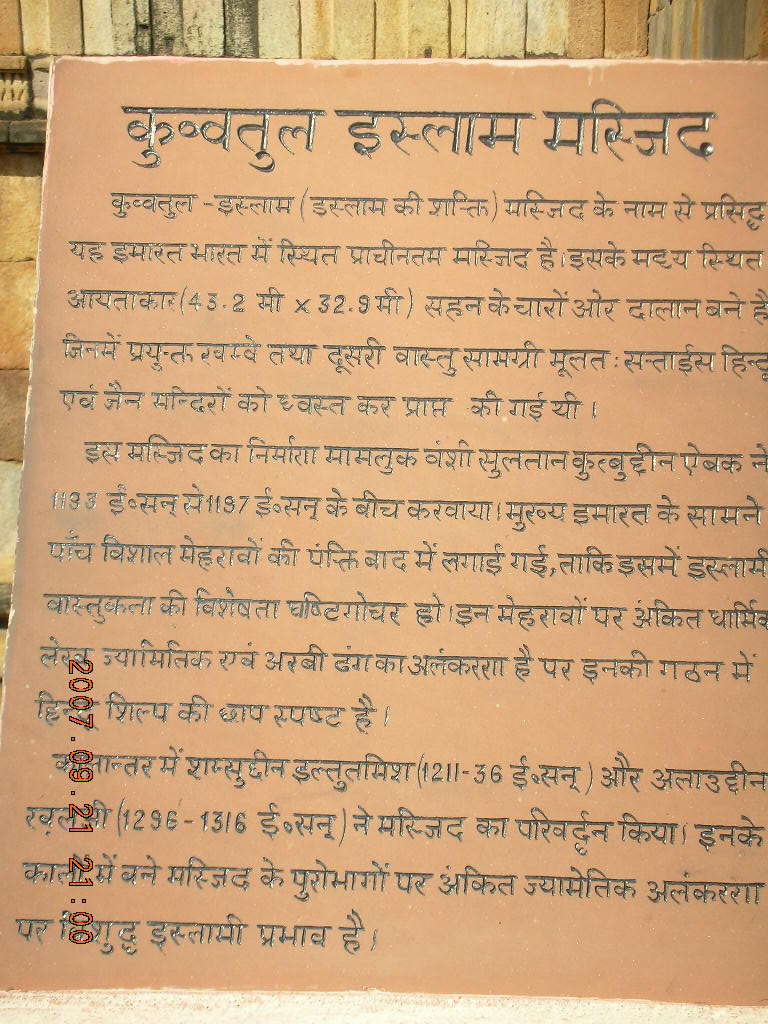 कुव्वतुल इस्लाम मस्जिद
कुव्वतुल - इस्लाम (इस्लाम की शक्ति) मस्जिद के नाम से प्रसिद्ध
यह इमारत भारत में स्थित प्राचीनतम मस्जिद है। इसके मध्य स्थित
आयताकार (43.2 मी x 32.9 मी) सहन के चारों ओर दालान बने है
जिनमें प्रयुक्त खम्बे तथा दूसरी वास्तु सामग्री मूलत: सत्ताईस हिन्दू
एवं जैन मन्दिरों को ध्वस्त कर प्राप्त की गई थी।
इस मस्जिद का निर्माण मामलुक वंशी सुलतान कुत्बुद्दीन ऐबक ने
1193 ई०सन् से 1197 ई०सन् के बीच करवाया। मुख्य इमारत के सामने
पाँच विशाल मेहरावों की पंक्ति बाद में लगाई गई, ताकि इसमें इस्लामी
वास्तुकला की विशेषता घष्टिगोचर हो। इन मेहरावों पर अंकित धार्मिक
लेख ज्यामितिक एवं अरबी ढंग का अलंकरण है पर इनकी गठन में
हिन्दू शिल्प की छाप स्पष्ट है।
कालान्तर में शम्सुद्दीन इल्तुतमिश (1211-36 ई०सन्) और अलाउद्दीन
खलजी (1296-1316 ई०सन्) ने मस्जिद का परिवर्द्धन किया। इनके
काल में बने मस्जिद के पुरोभागों पर अंकित ज्यामेतिक अलंकरण
पर विशुद्ध इस्लामी प्रभाव है।
2007.09.21 21:00